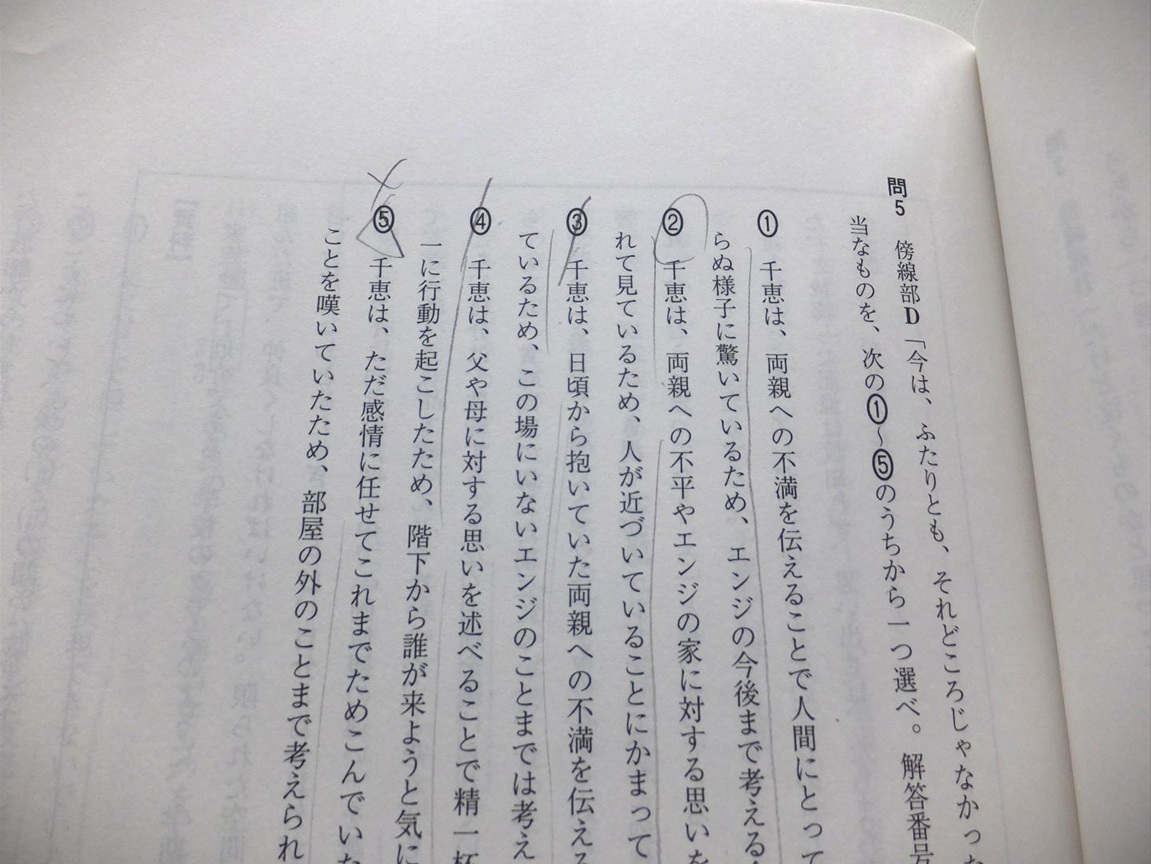 問5 傍線部D「今は、ふたりとも、それどころじゃなかった
当なものを、次の①〜⑤のうちから一つ選べ。解答番号
① 千恵は、両親への不満を伝えることで人間にとって
らぬ様子に驚いているため、エンジの今後まで考える
② 千恵は、両親への不平やエンジの家に対する思いを
れて見ているため、人が近づいていることにかまって
③ 千恵は、日頃から抱いていた両親への不満を伝える
ているため、この場にいないエンジのことまでは考え
④ 千恵は、父や母に対する思いを述べることで精一杯
一に行動を起こしたため、階下から誰が来ようと気に
⑤ 千恵は、ただ感情に任せてこれまでためこんでいた
ことを嘆いていたため、部屋の外のことまで考えられ